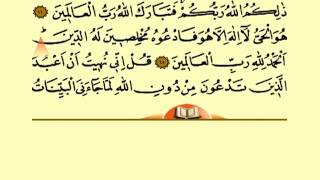 ذَٰلِكُمُ اللَّهُ رَبُّكُمْ فَتَبَارَكَ اللَّهُ رَبُّ الْعَالَمِينَ
هُوَ الْحَيُّ لَا إِلَٰهَ إِلَّا هُوَ فَادْعُوهُ مُخْلِصِينَ لَهُ الدِّينَ
الْحَمْدُ لِلَّهِ رَبِّ الْعَالَمِينَ قُلْ إِنِّي نُهِيتُ أَنْ أَعْبُدَ
الَّذِينَ تَدْعُونَ مِنْ دُونِ اللَّهِ لَمَّا جَاءَنِيَ الْبَيِّنَاتُ